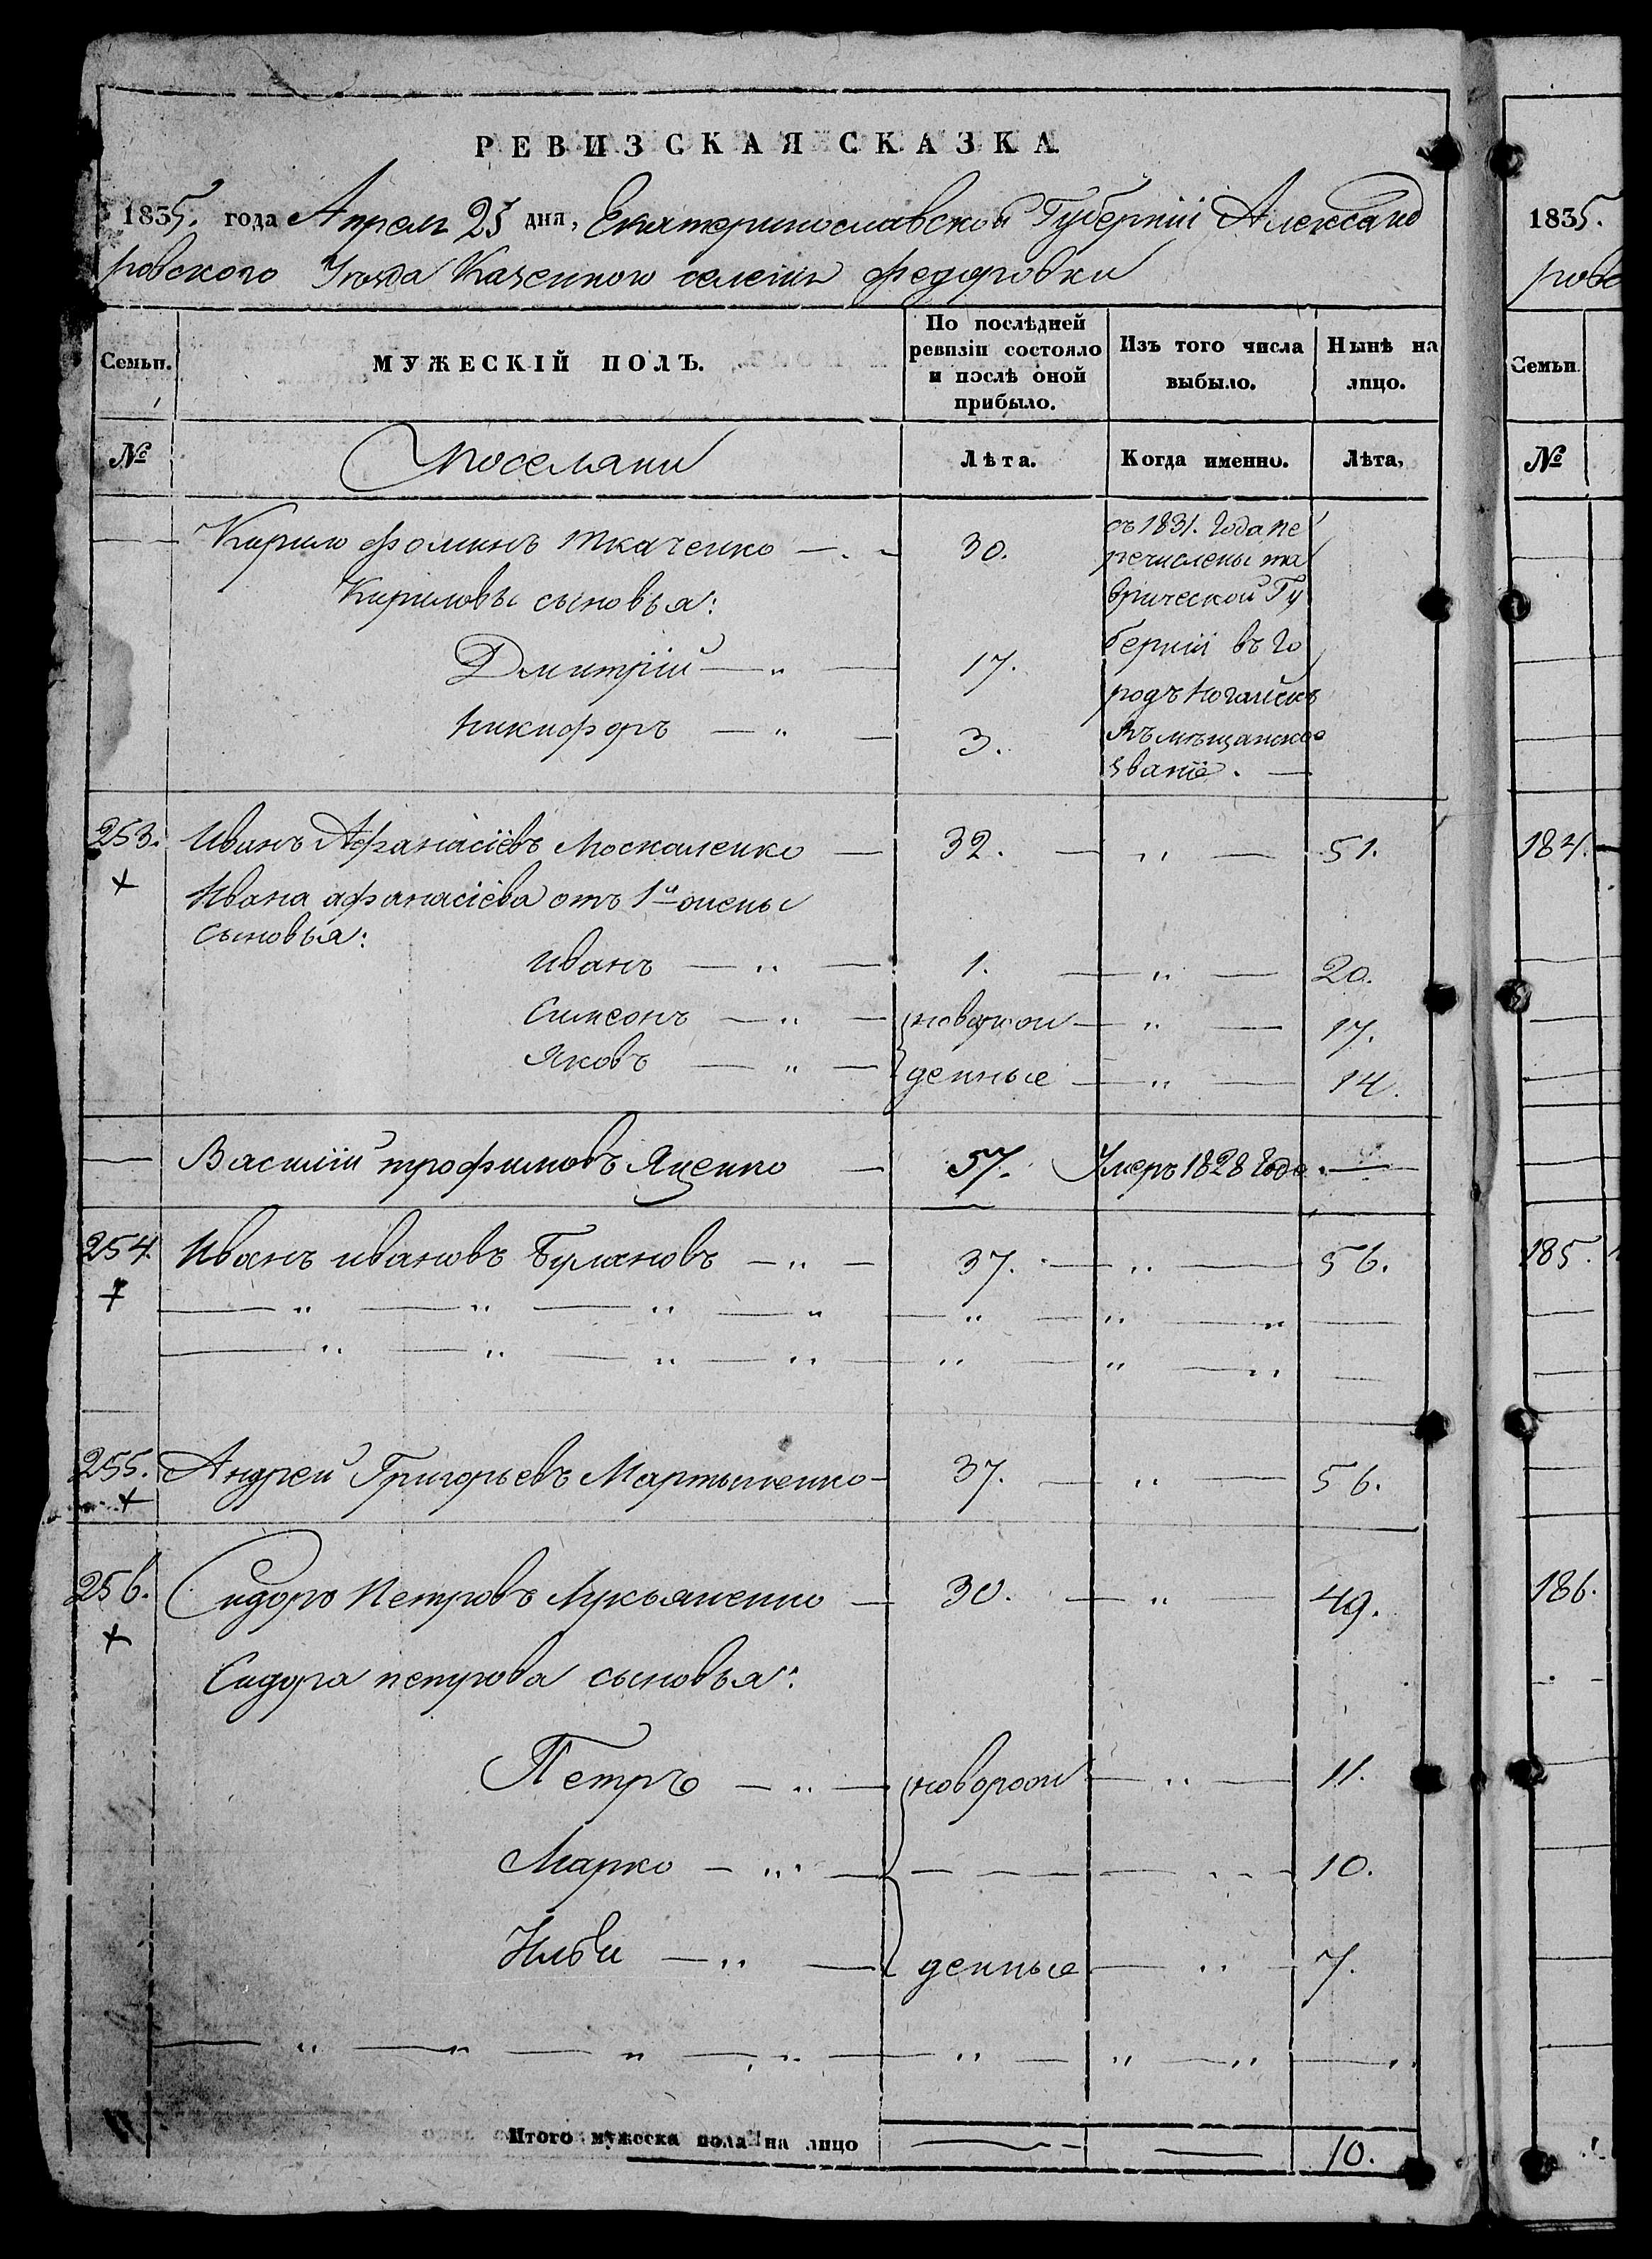 РЕВИЗСКАЯ СКАЗКА
1835. года Апреля 25 дня, Екатеринославской Губернии Александ
ровского Уезда Казенного селения Федоровки
Семьи.
МУЖЕСКІЙ ПОЛЪ.
По послѣдней ревизіи состояло и послѣ оной прибыло.
Изъ того числа выбыло.
Нынѣ на лицо.
№
поселяни
Лѣта.
Когда именно.
Лѣта,
Кирило Фоминъ Ткаченко 30.
съ 1831. Года пе
речислены та
врической Гу
берніи въ Го
родъ Ногайскъ
въ мѣщанское
званіе.
Кириловы сыновья:
Дмитрій 17.
Никифоръ 3.
253. Иванъ Афанасіевъ Москаленко 32. 51.
Ивана афанасіева отъ 1й жены
сыновья:
Иванъ 1. 20.
Симеонъ новорож 17.
Яковъ денные 14.
Василій трофимовъ Яценко 57. Умеръ 1828 Года
254. Иванъ ивановъ Булановъ 37. 56.
255. Андрей Григорьевъ Мартыненко 37. 56.
256. Сидоръ Петровъ Лукьяненко 30. 49.
Сидора петрова сыновья:
Петръ новорож 11.
Марко 10.
денные 7.
Итого мужеска пола на лицо 10.
1835.
рово
Семьи
№
184.
185.
186.